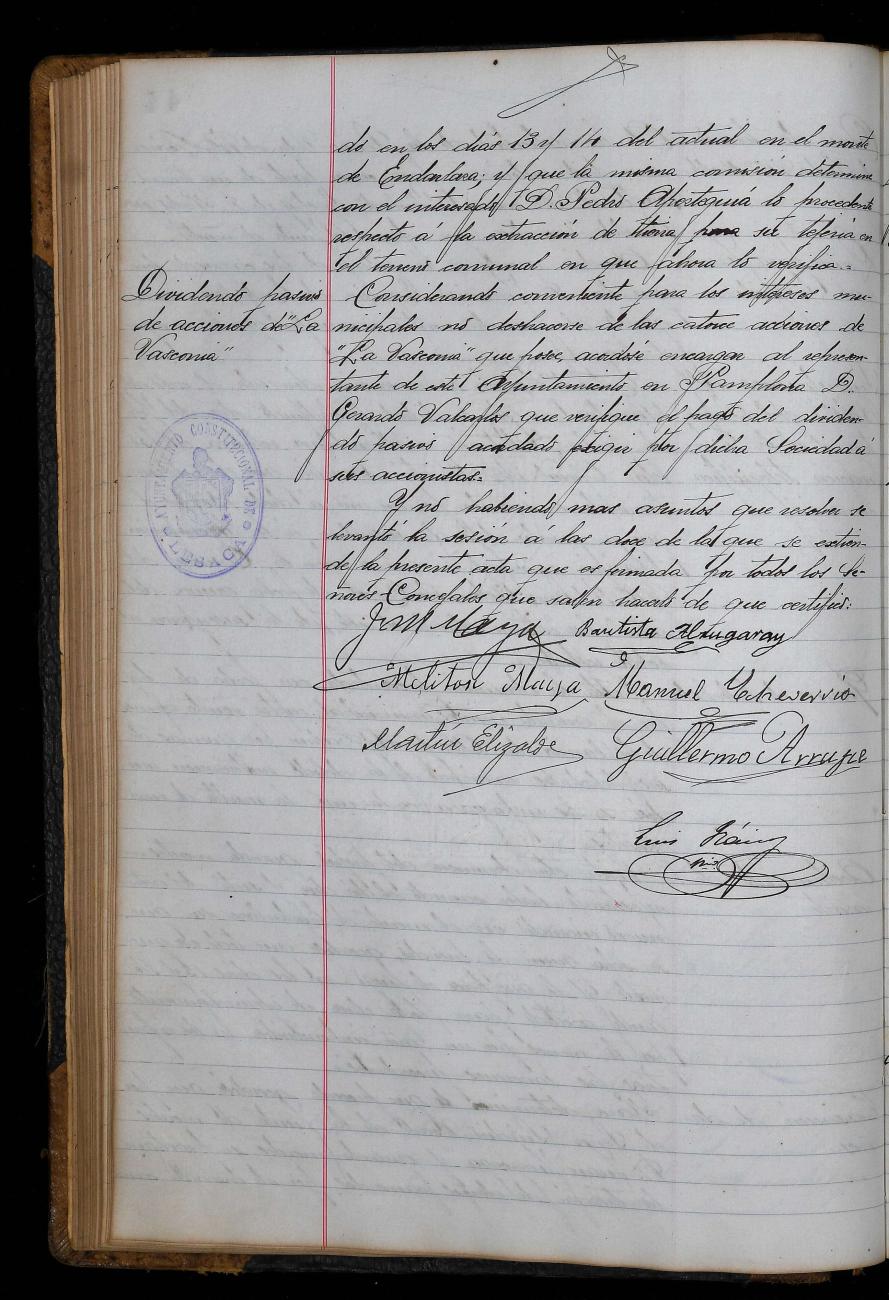 do en los dias 13 y 14 del actual en el monte
de Endarlaza; y que la misma comisión determine
con el interesado D. Pedro Apezteguia lo procedente
respecto á la extracción de tierra para su tejeria en
el terreno comunal en que ahora lo verifica.=
Dividendo pasivo
de acciones de "La
Vasconia"
Considerando conveniente para los intereses mu-
nicipales no deshacerse de las catorce acciones de
"La Vasconia" que posee, acordóse encargar al represen-
tante de este Ayuntamiento en Pamplona D.
Gerardo Valcarlos que verifique el pago del dividen-
do pasivo acordado exigir por dicha Sociedad á
sus accionistas.=
Y no habiendo mas asuntos que resolver se
levantó la sesión á las doce de la que se extien-
de la presente acta que es firmada por todos los Se-
ñores Concejales que saben hacerlo de que certifico:
José Maya Bautista Altugaray
Meliton Maya Manuel Echeverria
Martin Elizalde Guillermo Arrupe
Luis
Srio
AYUNTAMIENTO CONSTITUCIONAL DE
LESACA